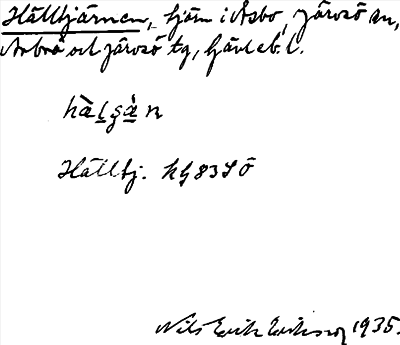 Hällbjärnen, tjärn i Åsbo, Järvsö sn,
Arbrå och Järvsö tg, Gävleb. l.
hàlgà n
Hällbj. kg 83 S Ö
Nils Erik Eriksson 1935.